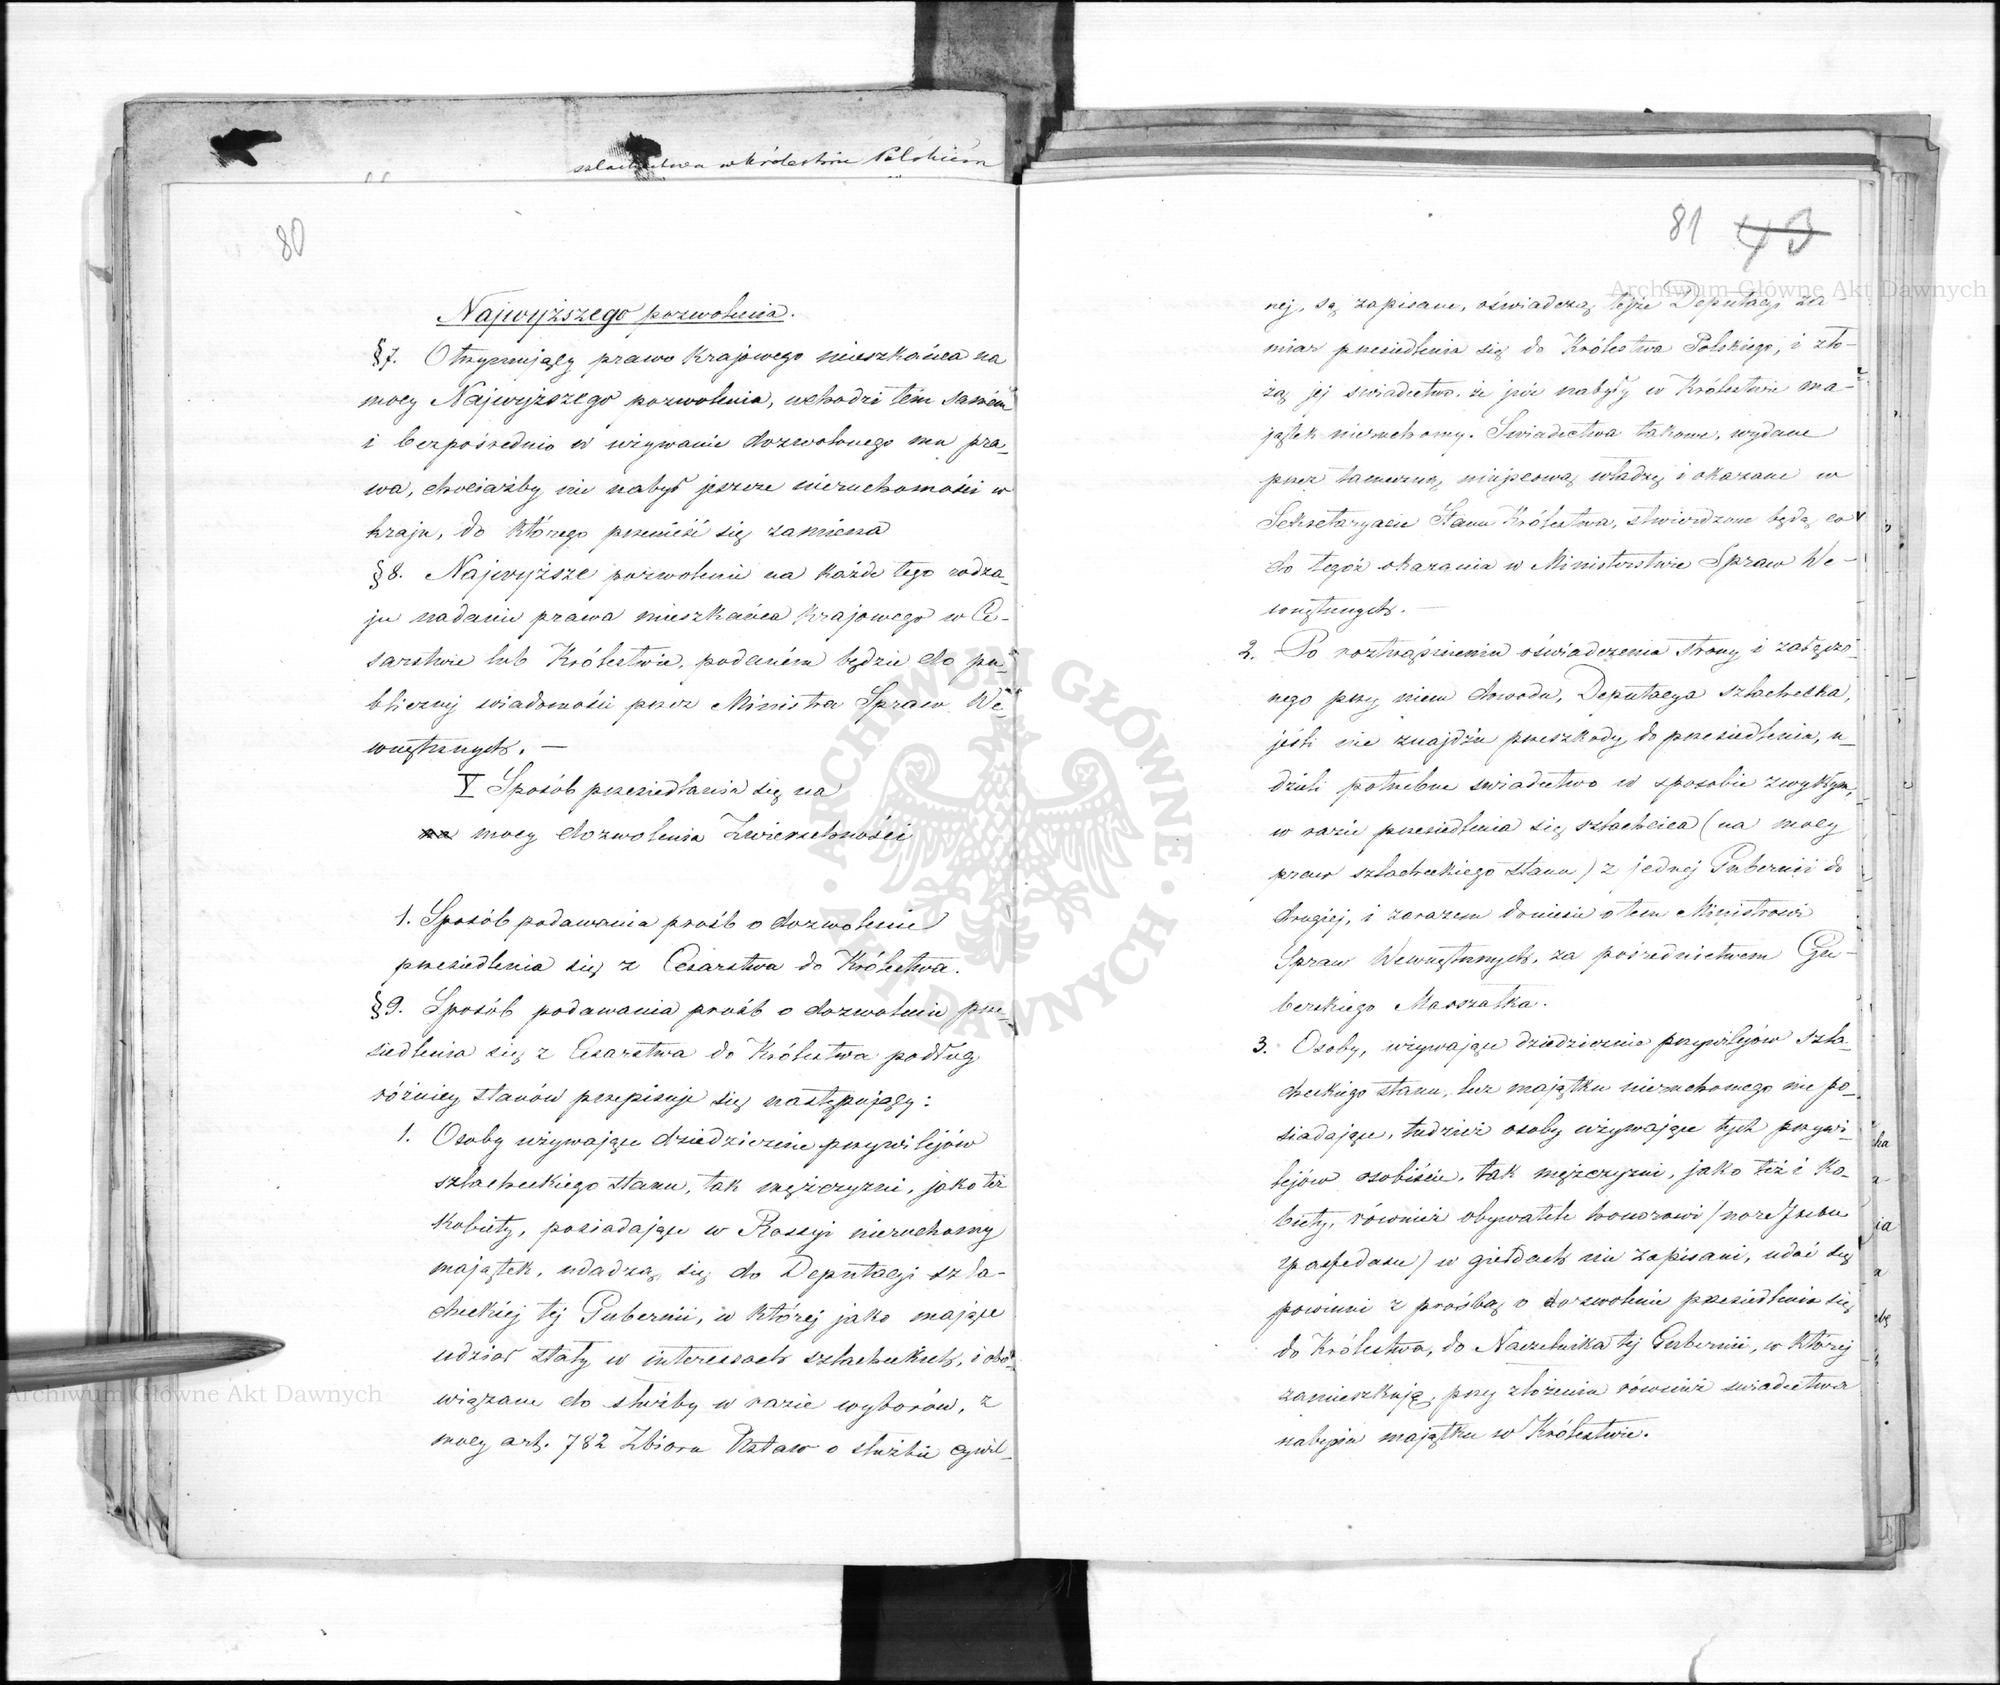 szlachectwa w Królestwie Polskiém
80
Najwyższego pozwolenia.
§7. Otrzymujący prawo Krajowego mieszkańca na
mocy Najwyższego pozwolenia, wchodzi tém samém
i bezpośrednio w używanie dozwolonego mu pra-
wa, chociażby nie nabył jeszcze nieruchomości w
kraju, do którego przenieść się zamierza
§8. Najwyższe pozwolenie na każde tego rodza-
ju nadanie prawa mieszkańca Krajowego w Ce-
sarstwie lub Królestwie, podaném będzie do pu-
blicznej wiadomości przez Ministra Spraw We-
wnętrznych. —
V Sposób przesiedlania się na
mocy dozwolenia Zwierzchności
1. Sposób podawania próśb o dozwolenie
przesiedlenia się z Cesarstwa do Królestwa.
§9. Sposób podawania próśb o dozwolenie prze-
siedlenia się z Cesarstwa do Królestwa podług
różnicy stanów przepisuje się następujący:
1. Osoby używające dziedzicznie przywilejów
szlacheckiego stanu, tak mężczyzni, jako też
kobiety, posiadające w Rossyi nieruchomy
majątek, udadzą się do Deputacyi szla-
checkiej tej Gubernii, w której jako mające
udział stały w interessach szlacheckich, i obo-
wiązane do służby w razie wyborów, z
mocy art. 782 Zbioru Ustaw o służbie cywil-
81 43
nej, są zapisane, oświadczą tejże Deputacyi za-
miar przesiedlenia się do Królestwa Polskiego, i zło-
żą jej świadectwo, że już nabyły w Królestwie ma-
jątek nieruchomy. Świadectwa takowe, wydane
przez tameczną miejscową władzę i okazane w
Sekretaryacie Stanu Królestwa, stwierdzone będą co
do tegoż okazania w Ministerstwie Spraw We-
wnętrznych. —
2. Po roztrząśnieniu oświadczenia strony i załączo-
nego przy niem dowodu, Deputacya szlachecka,
jeśli nie znajdzie przeszkody do przesiedlenia, u-
dzieli potrzebne świadectwo w sposobie zwykłym,
w razie przesiedlenia się szlachcica (na mocy
praw szlacheckiego stanu) z jednej Gubernii do
drugiej, i zarazem doniesie o tem Ministrowi
Spraw Wewnętrznych, za pośrednictwem Gu-
berskiego Marszałka.
3. Osoby, używające dziedzicznie przywilejów szla-
checkiego stanu, lecz majątku nieruchomego nie po-
siadające, tudzież osoby używające tych przywi-
lejów osobiście, tak mężczyzni, jako też i Ko-
biety, również obywatele honorowi
w giełdach nie zapisani, udać się
powinni z prośbą o dozwolenie przesiedlenia się
do Królestwa, do Naczelnika tej Gubernii, w której
zamieszkują, przy złożeniu również świadectwa
nabycia majątku w Królestwie.
Archiwum Główne Akt Dawnych
Archiwum Główne Akt Dawnych
ARCHIWUM GŁÓWNE AKT DAWNYCH